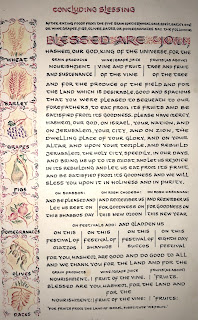 CONCLUDING BLESSING
AFTER EATING FOOD FROM THE FIVE GRAIN
WINE, GRAPE JUICE, OLIVES, DATES OR POMEGRANATES, SAY THE FOLLOWING
BLESSED ARE YOU
HASHEM, OUR GOD, KING OF THE UNIVERSE, FOR THE
GRAIN PRODUCTS | WINE/GRAPE JUICE | FRUITS (AS ABOVE)
NOURISHMENT | VINE AND FRUIT | TREE AND FRUIT
AND SUSTENANCE | OF THE VINE | OF THE TREE
AND FOR THE PRODUCE OF THE FIELD AND FOR
THE LAND WHICH IS DESIRABLE, GOOD AND SPACIOUS
THAT YOU WERE PLEASED TO BEQUEATH TO OUR
FOREFATHERS, TO EAT FROM ITS FRUITS AND BE
SATISFIED FROM ITS GOODNESS. PLEASE HAVE MERCY
HASHEM, OUR GOD, ON ISRAEL, YOUR NATION, AND
ON JERUSALEM, YOUR CITY, AND ON ZION, THE
DWELLING PLACE OF YOUR GLORY, AND ON YOUR
ALTAR, AND UPON YOUR TEMPLE. AND REBUILD
JERUSALEM, THE HOLY CITY, SPEEDILY, IN OUR DAYS.
AND BRING US UP TO ITS MIDST, AND LET US REJOICE
IN ITS REBUILDING AND LET US EAT FROM ITS FRUIT,
AND BE SATISFIED FROM ITS GOODNESS AND WE WILL
BLESS YOU UPON IT IN HOLINESS AND IN PURITY.
ON SHABBOS | ON ROSH CHODESH | ON ROSH HASHANAH
AND BE PLEASED AND | AND REMEMBER US | AND REMEMBER US
LET US REST ON | FOR GOODNESS ON | FOR GOODNESS ON
THIS SHABBOS DAY | THIS NEW MOON | THIS NEW YEAR
ON FESTIVALS ADD: AND GLADDEN US
ON THIS | ON THIS | ON THIS | ON THIS
FESTIVAL OF | FESTIVAL OF | FESTIVAL OF | EIGHTH DAY
MATZOS | SHAVUOS | SUCCOS | FESTIVAL
FOR YOU, HASHEM, ARE GOOD AND DO GOOD TO ALL
AND WE THANK YOU FOR THE LAND AND FOR THE
GRAIN PRODUCTS | WINE/GRAPE JUICE | FRUITS (AS ABOVE)
NOURISHMENT. | FRUIT OF THE VINE. | FRUITS.
BLESSED ARE YOU, HASHEM, FOR THE LAND AND
FOR THE
NOURISHMENT. | FRUIT OF THE VINE. | FRUITS.
WHEAT
BARLEY
GRAPES
FIGS
POMEGRANATES
OLIVES
DATES